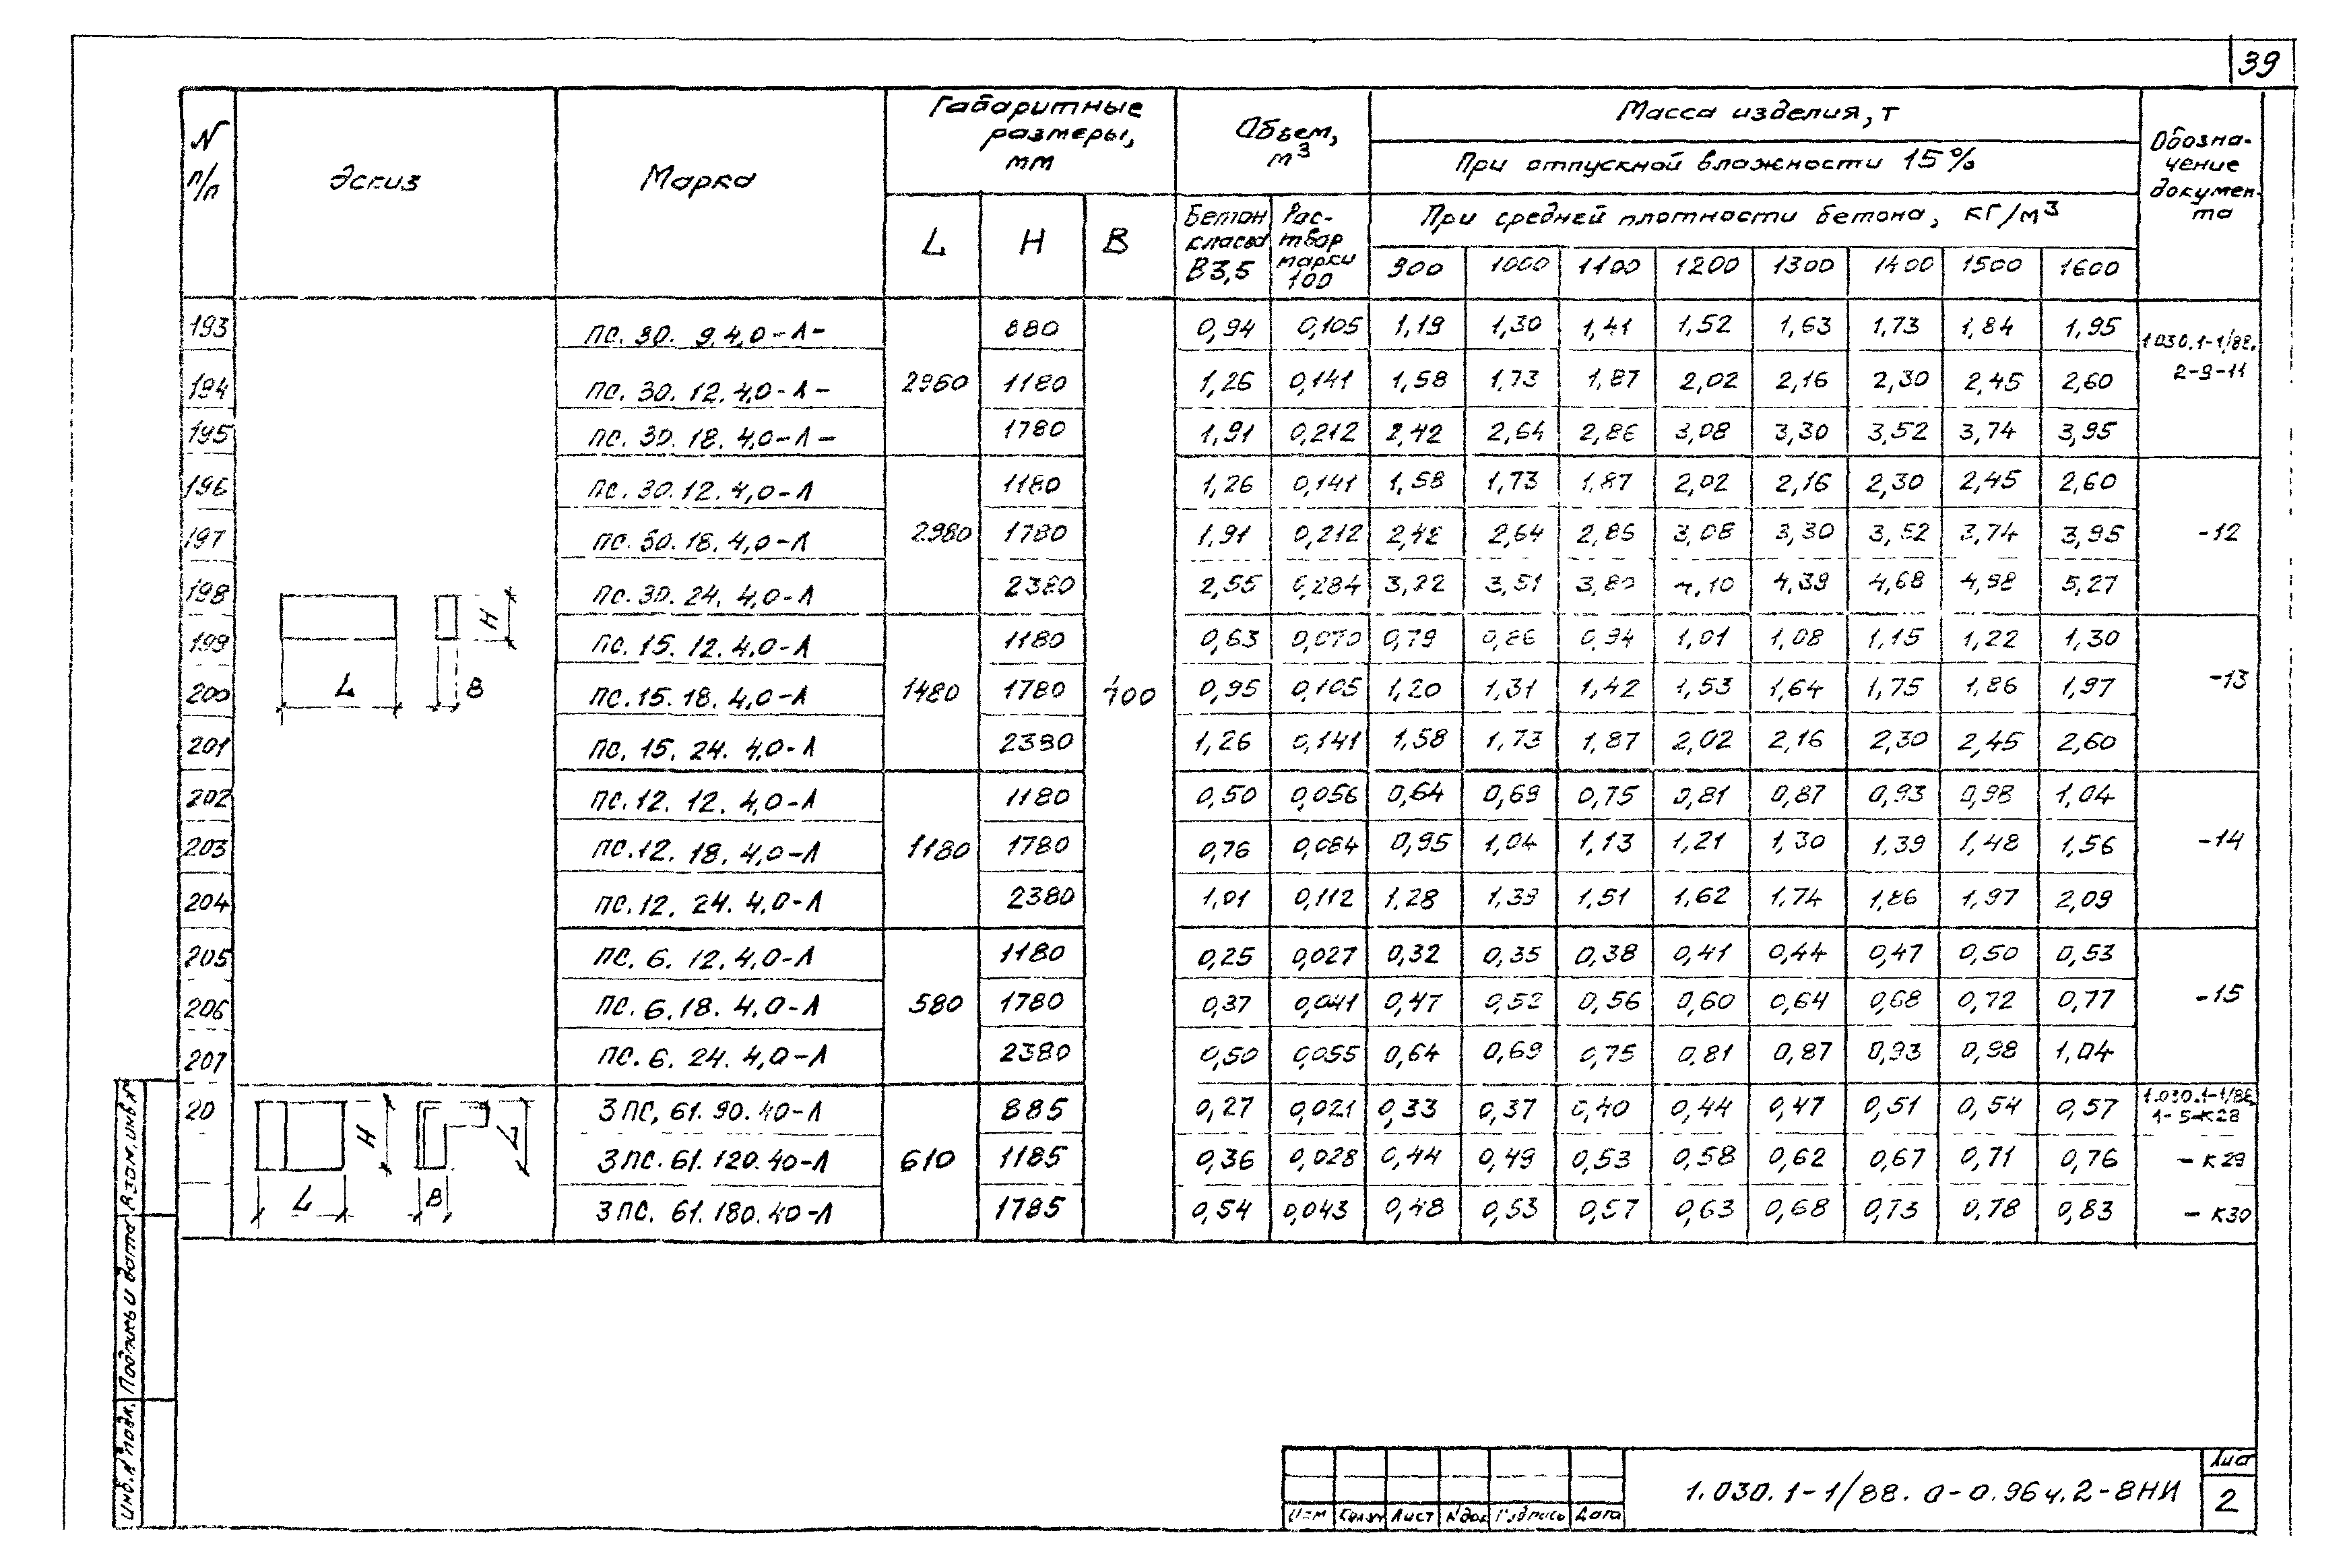 39
N п/п Эскиз Марка Габаритные размеры, мм Объем, м3 Масса изделия, т Обозна-чение докумен-та
При отпускной влажности 15%
L H B Бетон класса В3,5 Рас-твор марки 100 При средней плотности бетона, кг/м3
900 1000 1100 1200 1300 1400 1500 1600
193 ПС. 30. 9. 4,0-Л- 880 0,94 0,105 1,19 1,30 1,41 1,52 1,63 1,73 1,84 1,95 1.030.1-1/88.
194 ПС. 30. 12. 4,0-Л- 2960 1180 1,26 0,141 1,58 1,73 1,87 2,02 2,16 2,30 2,45 2,60 2-9-11
195 ПС. 30. 18. 4,0-Л- 1780 1,91 0,212 2,42 2,64 2,86 3,08 3,30 3,52 3,74 3,95
196 ПС. 30. 12. 4,0-Л 1180 1,26 0,141 1,58 1,73 1,87 2,02 2,16 2,30 2,45 2,60
197 ПС. 30. 18. 4,0-Л 2980 1780 1,91 0,212 2,42 2,64 2,86 3,08 3,30 3,52 3,74 3,95 -12
198 ПС. 30. 24. 4,0-Л 2380 2,55 0,284 3,22 3,51 3,80 4,10 4,39 4,68 4,98 5,27
H
199 ПС. 15. 12. 4,0-Л 1180 0,63 0,070 0,79 0,86 0,94 1,01 1,08 1,15 1,22 1,30
200 L B ПС. 15. 18. 4,0-Л 1480 1780 100 0,95 0,105 1,20 1,31 1,42 1,53 1,64 1,75 1,86 1,97 -13
201 ПС. 15. 24. 4,0-Л 2380 1,26 0,141 1,58 1,73 1,87 2,02 2,16 2,30 2,45 2,60
202 ПС. 12. 12. 4,0-Л 1180 0,50 0,056 0,64 0,69 0,75 0,81 0,87 0,93 0,98 1,04
203 ПС. 12. 18. 4,0-Л 1180 1780 0,76 0,084 0,95 1,04 1,13 1,21 1,30 1,39 1,48 1,56 -14
204 ПС. 12. 24. 4,0-Л 2380 1,01 0,112 1,28 1,39 1,51 1,62 1,74 1,86 1,97 2,09
205 ПС. 6. 12. 4,0-Л 1180 0,25 0,027 0,32 0,35 0,38 0,41 0,44 0,47 0,50 0,53
206 ПС. 6. 18. 4,0-Л 580 1780 0,37 0,041 0,47 0,52 0,56 0,60 0,64 0,68 0,72 0,77 -15
207 ПС. 6. 24. 4,0-Л 2380 0,50 0,055 0,64 0,69 0,75 0,81 0,87 0,93 0,98 1,04
20 3ПС. 61. 90. 40-Л 885 0,27 0,021 0,33 0,37 0,40 0,44 0,47 0,51 0,54 0,57 1.030.1-1/88. 1-5-К28
H L 3ПС. 61. 120. 40-Л 610 1185 0,36 0,028 0,44 0,49 0,53 0,58 0,62 0,67 0,71 0,76 - К29
L B 3ПС. 61. 180. 40-Л 1785 0,54 0,043 0,48 0,53 0,57 0,63 0,68 0,73 0,78 0,83 - К30
Инв. N подл. Подпись и дата Взам. инв. N
Изм Кол.уч Лист N док Подпись Дата
1.030.1-1/88. 0-0.96 ч.2-8НИ
Лист
2